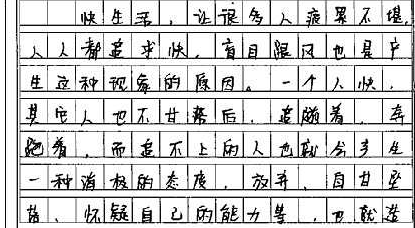 快生活，让很多人疲累不堪，
人人都追求快，盲目跟风也是产
生这种现象的原因。一个人快，
其它人也不甘落后，追随着，奔
跑着，而追不上的人也就会产生
一种消极的态度，放弃、自甘坠
落、怀疑自己的能力等，也就造